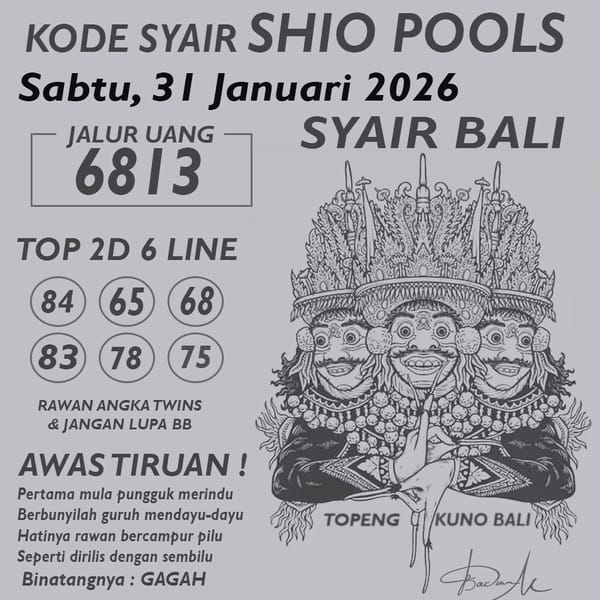 KODE SYAIR SHIO POOLS
Sabtu, 31 Januari 2026
JALUR UANG
6813
SYAIR BALI
TOP 2D 6 LINE
84 65 68
83 78 75
RAWAN ANGKA TWINS
& JANGAN LUPA BB
AWAS TIRUAN !
Pertama mula pungguk merindu
Berbunyilah guruh mendayu-dayu
Hatinya rawan bercampur pilu
Seperti dirilis dengan sembilu
Binatangnya : GAGAH
TOPENG KUNO BALI